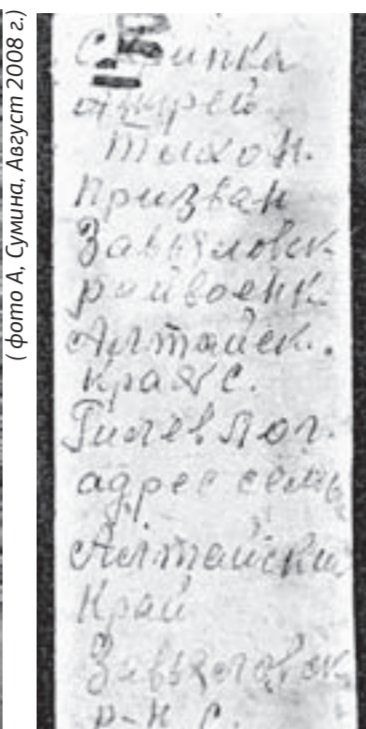 ( фото А, Сумина, Август 2008 г.)
Андрей
Тихон.
Призван
Завьяловск.
райвоенк.
Алтайск.
края с.
Гилев Лог.
адрес семь
Алтайски
Край
Завьяловск
р-н с.